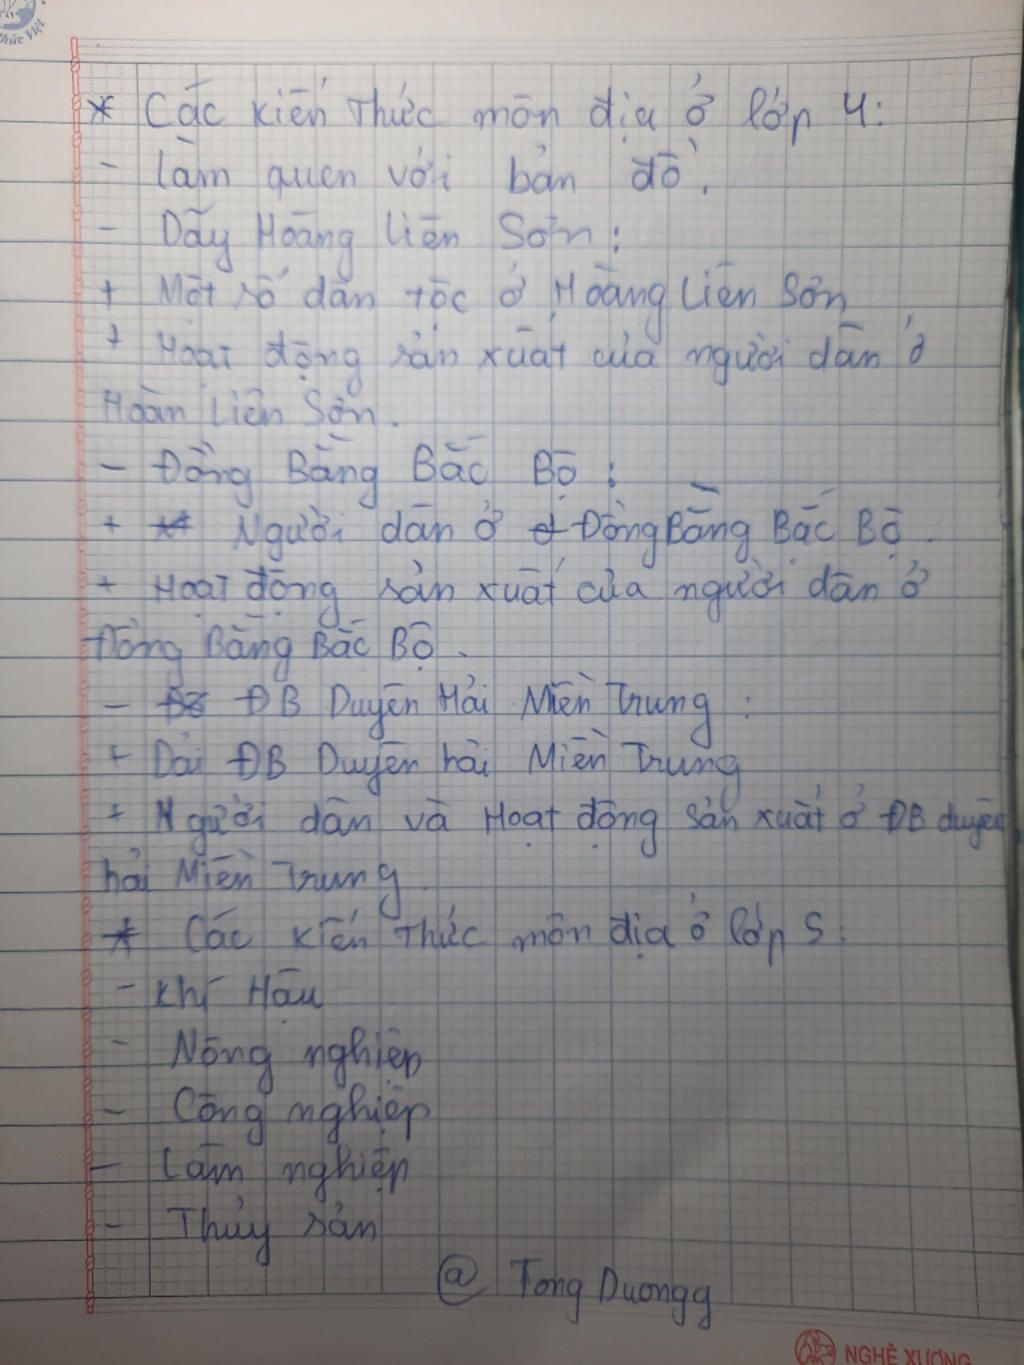 * Các kiến thức môn địa ở lớp 4:
- Làm quen với bản đồ.
- Dãy Hoàng Liên Sơn:
+ Một số dân tộc ở Hoàng Liên Sơn
+ Hoạt động sản xuất của người dân ở
Hoàn Liên Sơn.
- Đồng Bằng Bắc Bộ:
+ Người dân ở Đồng Bằng Bắc Bộ.
+ Hoạt động sản xuất của người dân ở
Đồng Bằng Bắc Bộ.
- ĐB Duyên Hải Miền Trung:
+ Dải ĐB Duyên hải Miền Trung
+ Người dân và Hoạt động sản xuất ở ĐB duyên
hải Miền Trung.
* Các kiến thức môn địa ở lớp 5:
- Khí Hậu
- Nông nghiệp
- Công nghiệp
- Lâm nghiệp
- Thủy sản
@ Tong Duongg
NGHÊ XƯƠNG